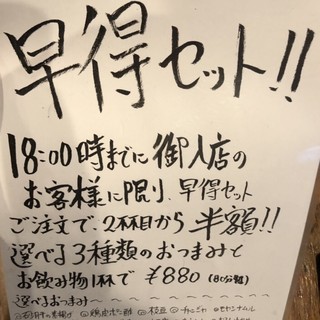 早得セット!!
18:00時までに御入店の
お客様に限り、早得セット
ご注文で、2杯目から半額!!
選べる3種類のおつまみと
お飲み物1杯で ¥880(80分制)
選べるおつまみ〜
◎鶏皮ポン酢 ◎枝豆 ◎モヤシナムル